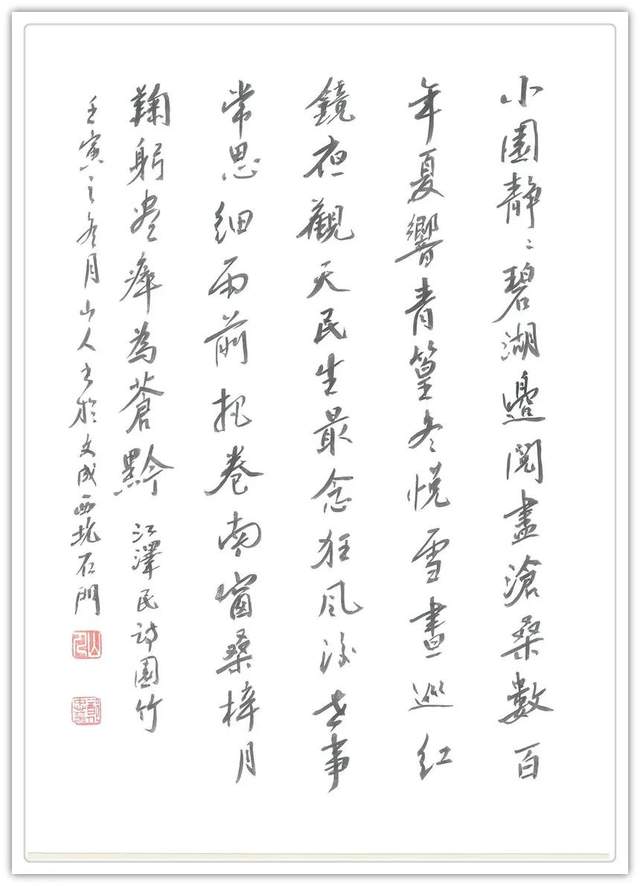 小園靜〻碧湖邊閱盡滄桑數百
年夏響青篁冬悅雪晝巡紅
鏡夜觀天民生最念狂風後世事
常思細雨前把卷南窗桑梓月
鞠躬盡瘁為蒼黔 江澤民詩園竹
壬寅之冬月山人书於文成西坑石門